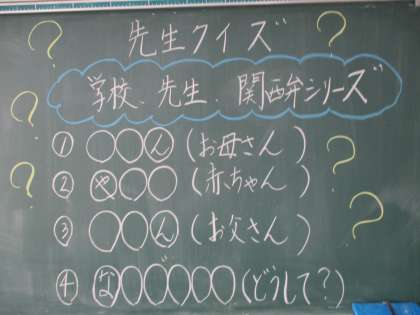 先生クイズ
学校、先生、関西弁シリーズ
① ○○ん (お母さん)
② や○○ (赤ちゃん)
③ ○○ん (お父さん)
④ な○○゛○○○ (どうして?)